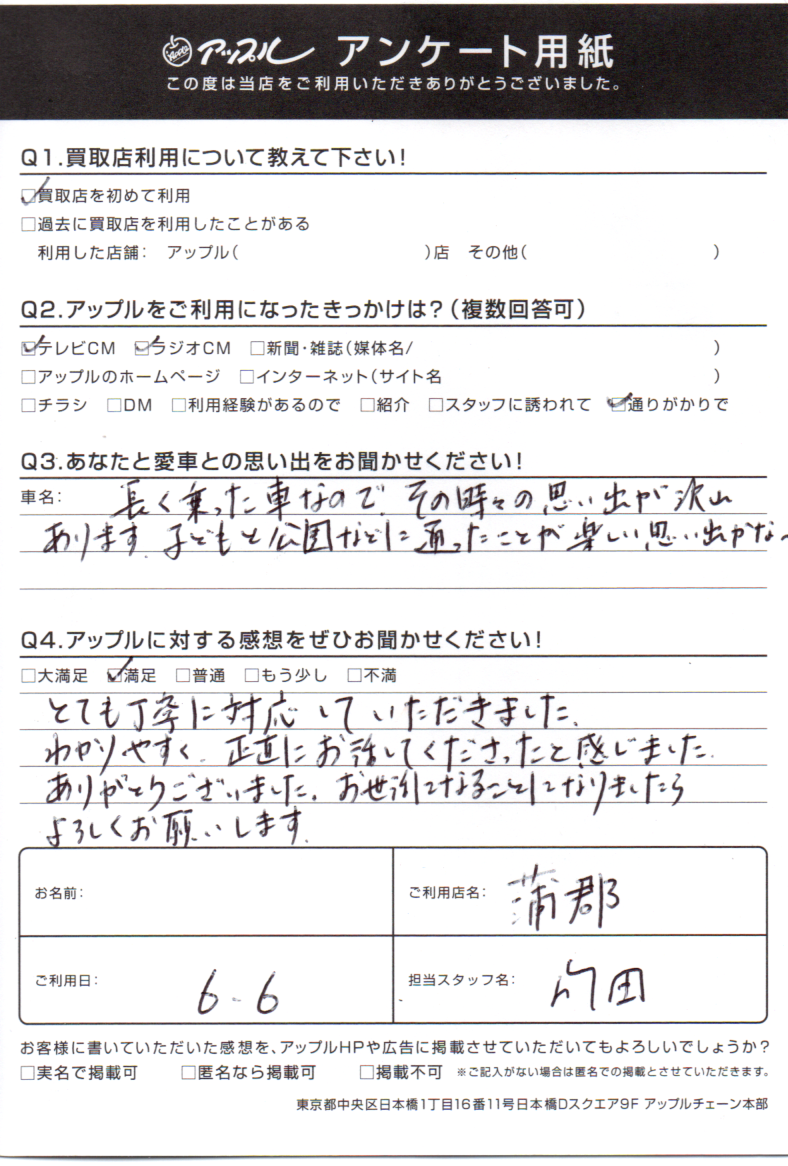 アップル アンケート用紙
この度は当店をご利用いただきありがとうございました。
Q1.買取店利用について教えて下さい!
☑買取店を初めて利用
□過去に買取店を利用したことがある
利用した店舗: アップル( )店 その他( )
Q2.アップルをご利用になったきっかけは?(複数回答可)
☑テレビCM ☑ラジオCM □新聞・雑誌(媒体名/ )
□アップルのホームページ □インターネット(サイト名 )
□チラシ □DM □利用経験があるので □紹介 □スタッフに誘われて ☑通りがかりで
Q3.あなたと愛車との思い出をお聞かせください!
車名: 長く乗った車なので、その時々の思い出が沢山
あります。子どもと公園などに通ったことが楽しい思い出かな~
Q4.アップルに対する感想をぜひお聞かせください!
□大満足 ☑満足 □普通 □もう少し □不満
とても丁寧に対応していただきました。
わかりやすく、正直にお話してくださったと感じました。
ありがとうございました。お世話になることになりましたら
よろしくお願いします。
お名前:
ご利用店名: 蒲郡
ご利用日: 6-6
担当スタッフ名: 竹田
お客様に書いていただいた感想を、アップルHPや広告に掲載させていただいてもよろしいでしょうか?
□実名で掲載可 □匿名なら掲載可 □掲載不可 ※ご記入がない場合は匿名での掲載とさせていただきます。
東京都中央区日本橋1丁目16番11号日本橋Dスクエア9F アップルチェーン本部